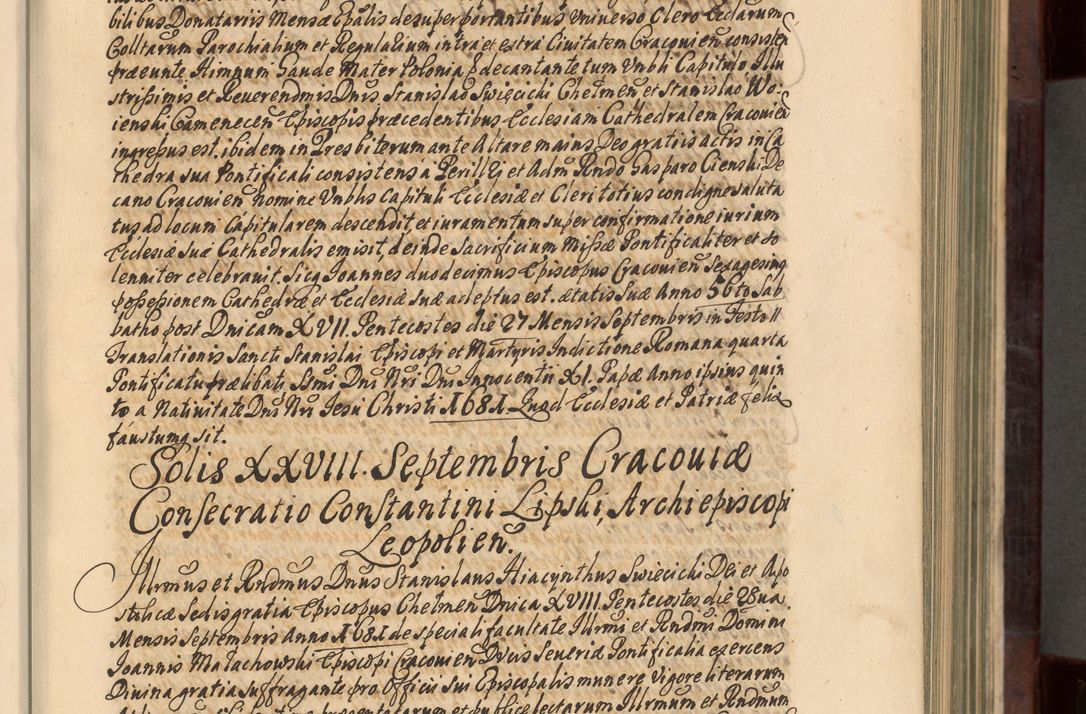 bilibus Donatariis Mensæ Epalis desuper portantibus Universo Clero Ecclarum
Colltarum Parochialium et Regularium intra et extra Civitatem Cracovien̄ consisten
præeunte Himnum Gaude Mater Polonia & decantante tum Vnbli Capitulo Illu
strissimis et Reverendmis Dnis Stanislao Swięcicki Chelmen̄ et Stanislao Wo-
ienski Camenecen̄ Episcopis præcedentibus Ecclesiam Cathedralem Cracovien
ingressus est, ibidem in Presbiterum ante Altare maius Deo gratiis actis in Ca
thedra sua Pontificali consistens á Perilli et Adm̄ Rndo Gasparo Cienski De
cano Cracovien̄ nomine Vnblis Capituli Ecclesiæ et Cleri totius condigne saluta
tus ad locum Capitularem descendit, et iuramentum super confirmatione iurium
Ecclesiæ suæ Cathedralis emisit, deinde Sacrificium Missæ Pontificaliter et so
lenniter celebravit. Sic Ioannes duodecimus Episcopus Cracovien̄ Sexagesimg
possessionem Cathedræ et Ecclesiæ suæ adeptus est. ætatis suæ Anno 56to Sab
batho post Dnicam XVII. Pentecostes die 27 Mensis Septembris in Festo
Translationis Sancti Stanislai Episcopi et Martyris Indictione Romana quarta
Pontificatu prælibati Ssmi Dni Nri Dni Innocentii XI. Papæ Anno ipsius quin
to a Nativitate Dni Nri Jesu Christi 1681 Quod Ecclesiæ et Patriæ felix
faustumq sit.
Solis XXVIII. Septembris Cracoviæ
Consecratio Constantini Lipski, Archiepiscopi
Leopolien̄.
Illrmus et Rndmus Dnus Stanislaus Hiacynthus Swiecicki Dei et Apo
stolicæ Sedis gratia Episcopus Chelmen̄ Dnica XVIII. Pentecostes die 28va
Mensis Septembris Anno 1681 de speciali facultate Illrmi et Rndmi Domini
Ioannis Małachowski Episcopi Cracovien̄ Ducis Severiæ Pontificalia exercens
Divina gratia suffragante pro Officii sui Episcopalis munere vigore literarum
et publice lectarum Illrmum et Rndmum